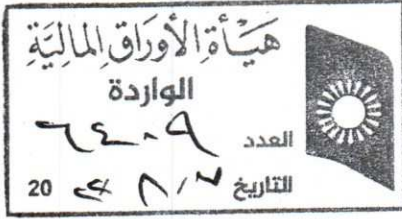 هَيْـأةِ الأوْرَاقِ المَالِيَّةِ
الواردة
العدد
التاريخ 20